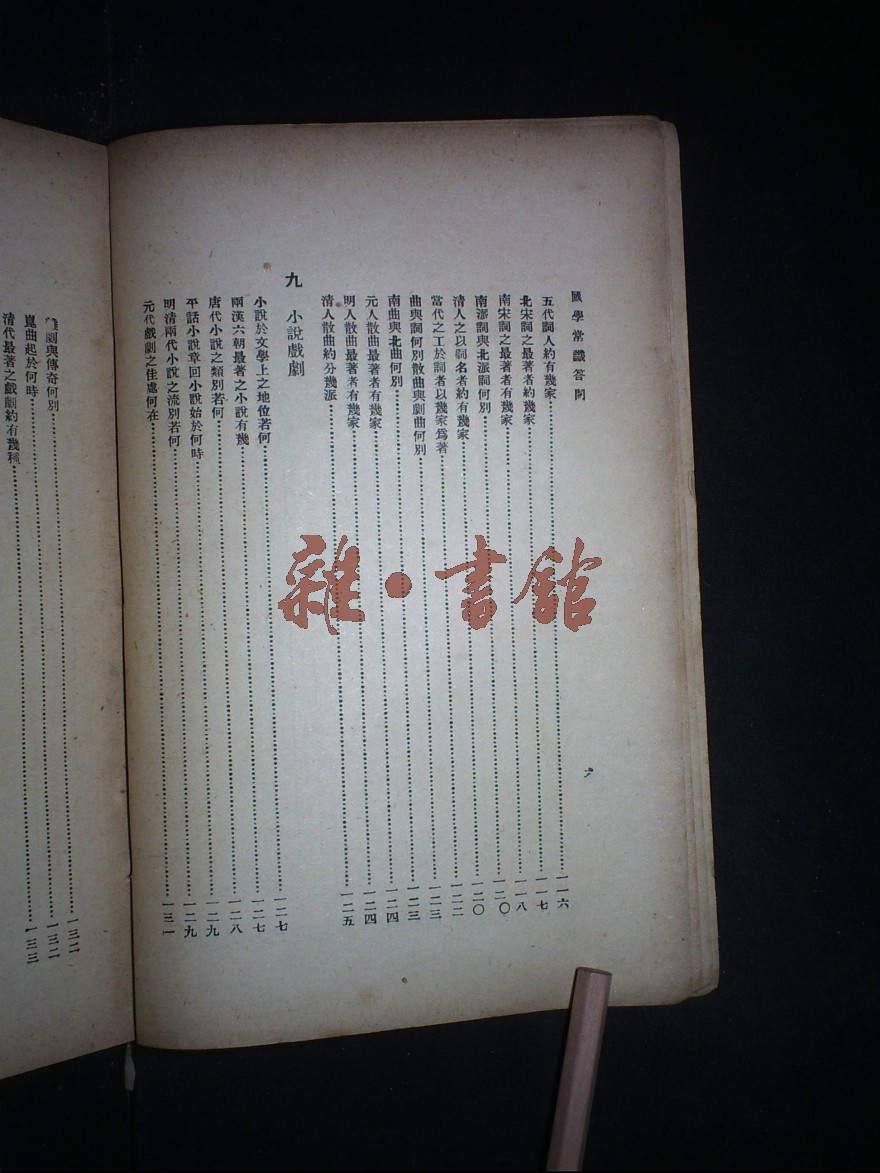 國學常識答問
五代詞人約有幾家⋯⋯一一六
北宋詞之最著者約幾家⋯⋯一一七
南宋詞之最著者有幾家⋯⋯一一八
南派詞與北派詞何別⋯⋯一二〇
清人之以詞名者約有幾家⋯⋯一二〇
當代之工於詞者以幾家爲著⋯⋯一二二
曲與詞何別散曲與劇曲何別⋯⋯一二三
南曲與北曲何別⋯⋯一二三
元人散曲最著者有幾家⋯⋯一二四
明人散曲最著者有幾家⋯⋯一二四
清人散曲約分幾派⋯⋯一二五
九 小說戲劇⋯⋯一二七
小說於文學上之地位若何⋯⋯一二七
兩漢六朝最著之小說有幾⋯⋯一二八
唐代小說之類別若何⋯⋯一二九
平話小說章回小說始於何時⋯⋯一二九
明清兩代小說之流別若何⋯⋯一三一
元代戲劇之佳處何在
劇與傳奇何別⋯⋯一三二
崑曲起於何時⋯⋯一三二
清代最著之戲劇約有幾種⋯⋯一三三
雜·書館